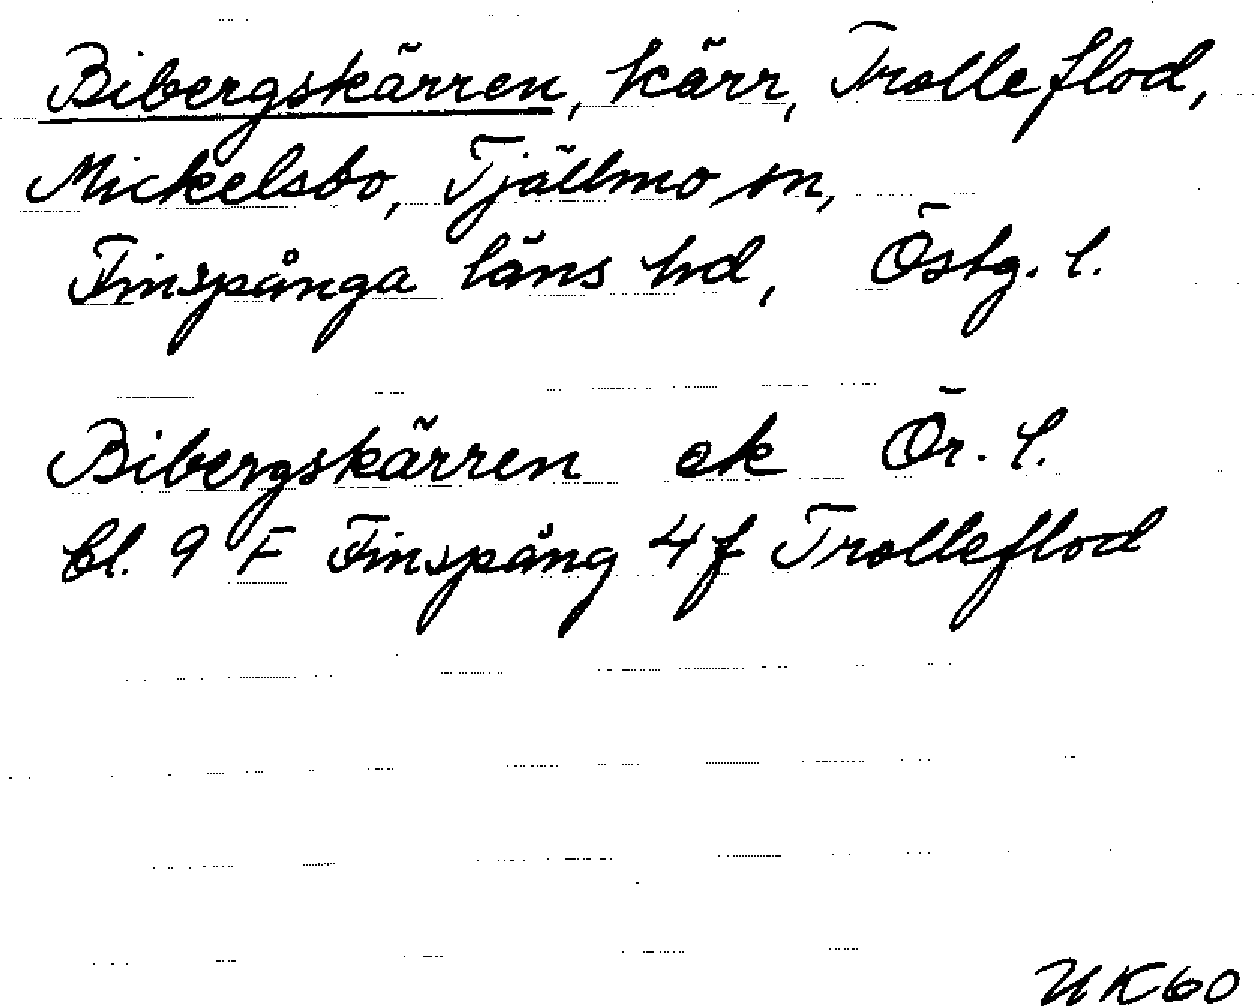 Bibergskärren, kärr, Trolleflod,
Mickelsbo, Tjällmo sn,
Finspånga läns hd, Östg. l.
Bibergskärren ek Ör. l.
bl. 9 F Finspång 4 f Trolleflod
UK60